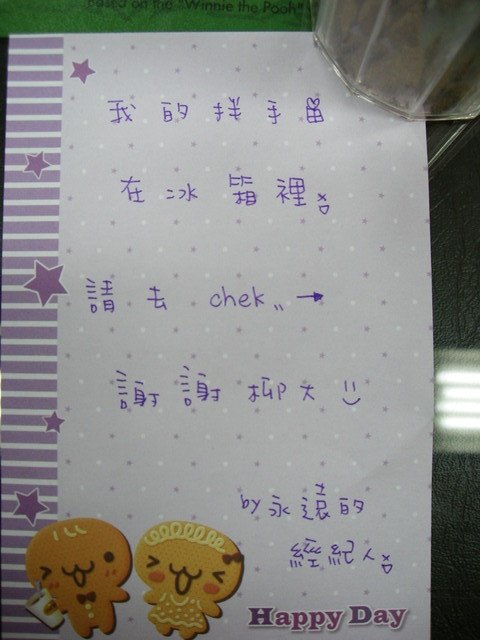 Based on the "Winnie the Pooh"
我的拌手留
在冰箱裡
請去 chek,, →
謝謝柳大 :)
by 永遠的
經紀人
Happy Day